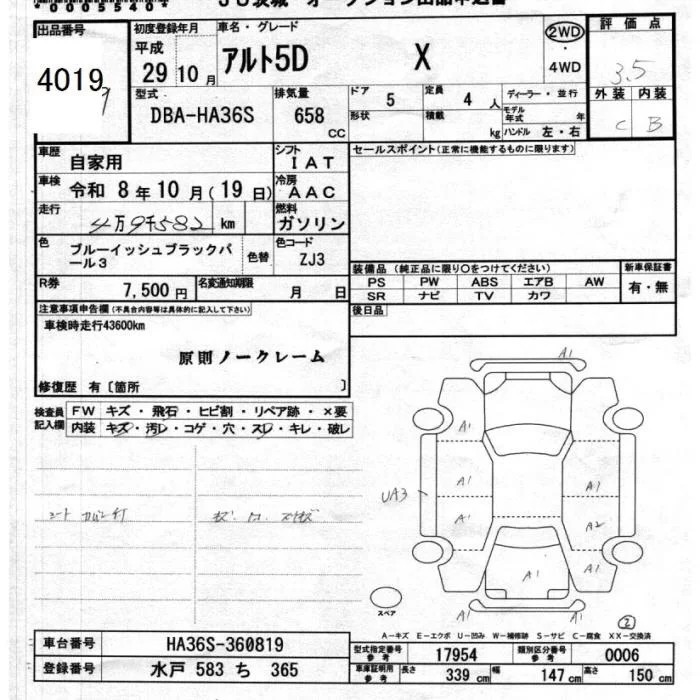 *00055404*
JU茨城 オークション出品申込書
出品番号
4019
初度登録年月
平成
29年10月
車名・グレード
アルト5D X
2WD
・
4WD
評価点
3.5
型式
DBA-HA36S
排気量
658
CC
ドア
5
定員
4 人
形状
積載
kg
ディーラー・並行
モデル年式 年
ハンドル 左・右
外装 内装
C B
車歴
自家用
シフト
IAT
車検
令和 8年10月(19日)
冷房
AAC
走行
4万9千582 km
燃料
ガソリン
色
ブルーイッシュブラックパール3
色替
色コード
ZJ3
R券
7,500円
名変通知期限
月 日
セールスポイント(正常に機能するものに限ります)
装備品 (純正品に限り○をつけてください)
PS PW ABS エアB AW
SR ナビ TV カワ
新車保証書
有・無
後日品
注意事項申告欄(不具合内容等は具体的に記入して下さい)
車検時走行43600km
原則ノークレーム
修復歴 有〔箇所 〕
検査員記入欄
FW キズ・飛石・ヒビ割・リペア跡・×要
内装 キズ・汚レ・コゲ・穴・スレ・キレ・破レ
A1
A1
A1
A1
UA3
A1
A2
A1
A1
A1
A1
スペア
2
A-キズ E-エクボ U-凹み W-補修跡 S-サビ C-腐食 XX-交換済
車台番号
HA36S-360819
登録番号
水戸 583 ち 365
型式指定番号
参考
17954
類別区分番号
参考
0006
車庫証明用
参考
長さ
339 cm
幅
147 cm
高さ
150 cm